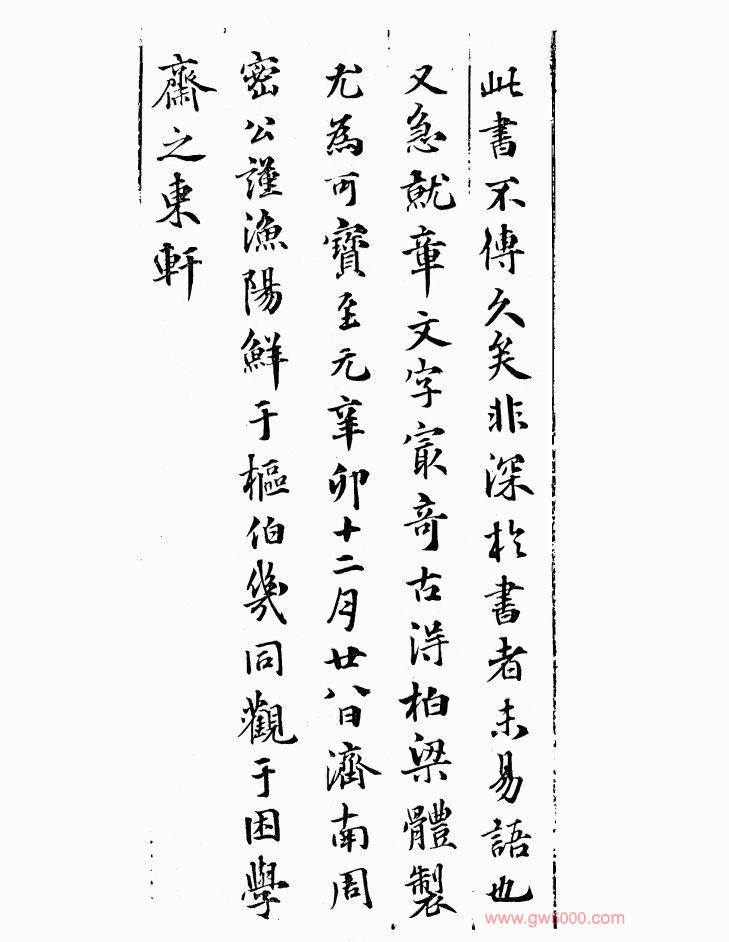 此書不傳久矣非深於書者未易語也
又急就章文字冣奇古淂柏梁體製
尤為可寶至元辛卯十二月廿八日濟南周
密公謹漁陽鮮于樞伯幾同觀于困學
齋之東軒
www.gw5000.com